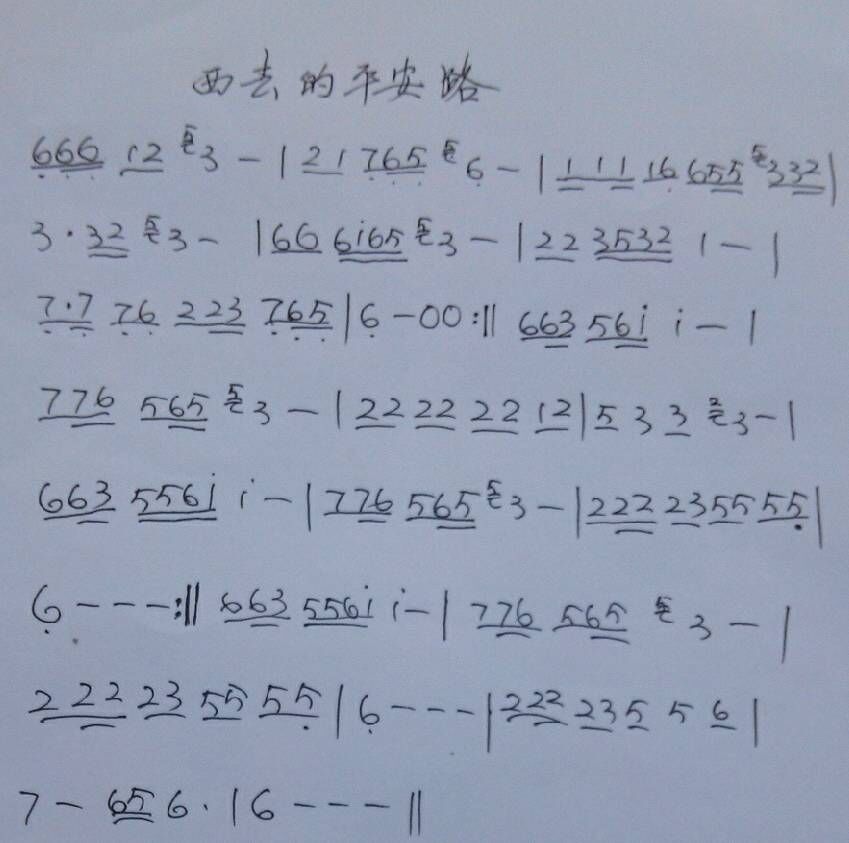 西去的平安路
666 12 53 - | 21 765 56 - | 111 16 655 5332 |
3·32 53 - | 66 6i65 53 - | 22 3532 1 - |
7·7 76 223 765 | 6 - 00 :‖ 663 56i i - |
776 565 53 - | 22 22 22 12 | 5 3 3 23 - |
663 556i i - | 776 565 53 - | 222 23 55 55 |
6 - - - :‖ 663 556i i - | 776 565 53 - |
222 23 55 55 | 6 - - - | 222 23 5 5 6 |
7 - 65 6· | 6 - - - ‖